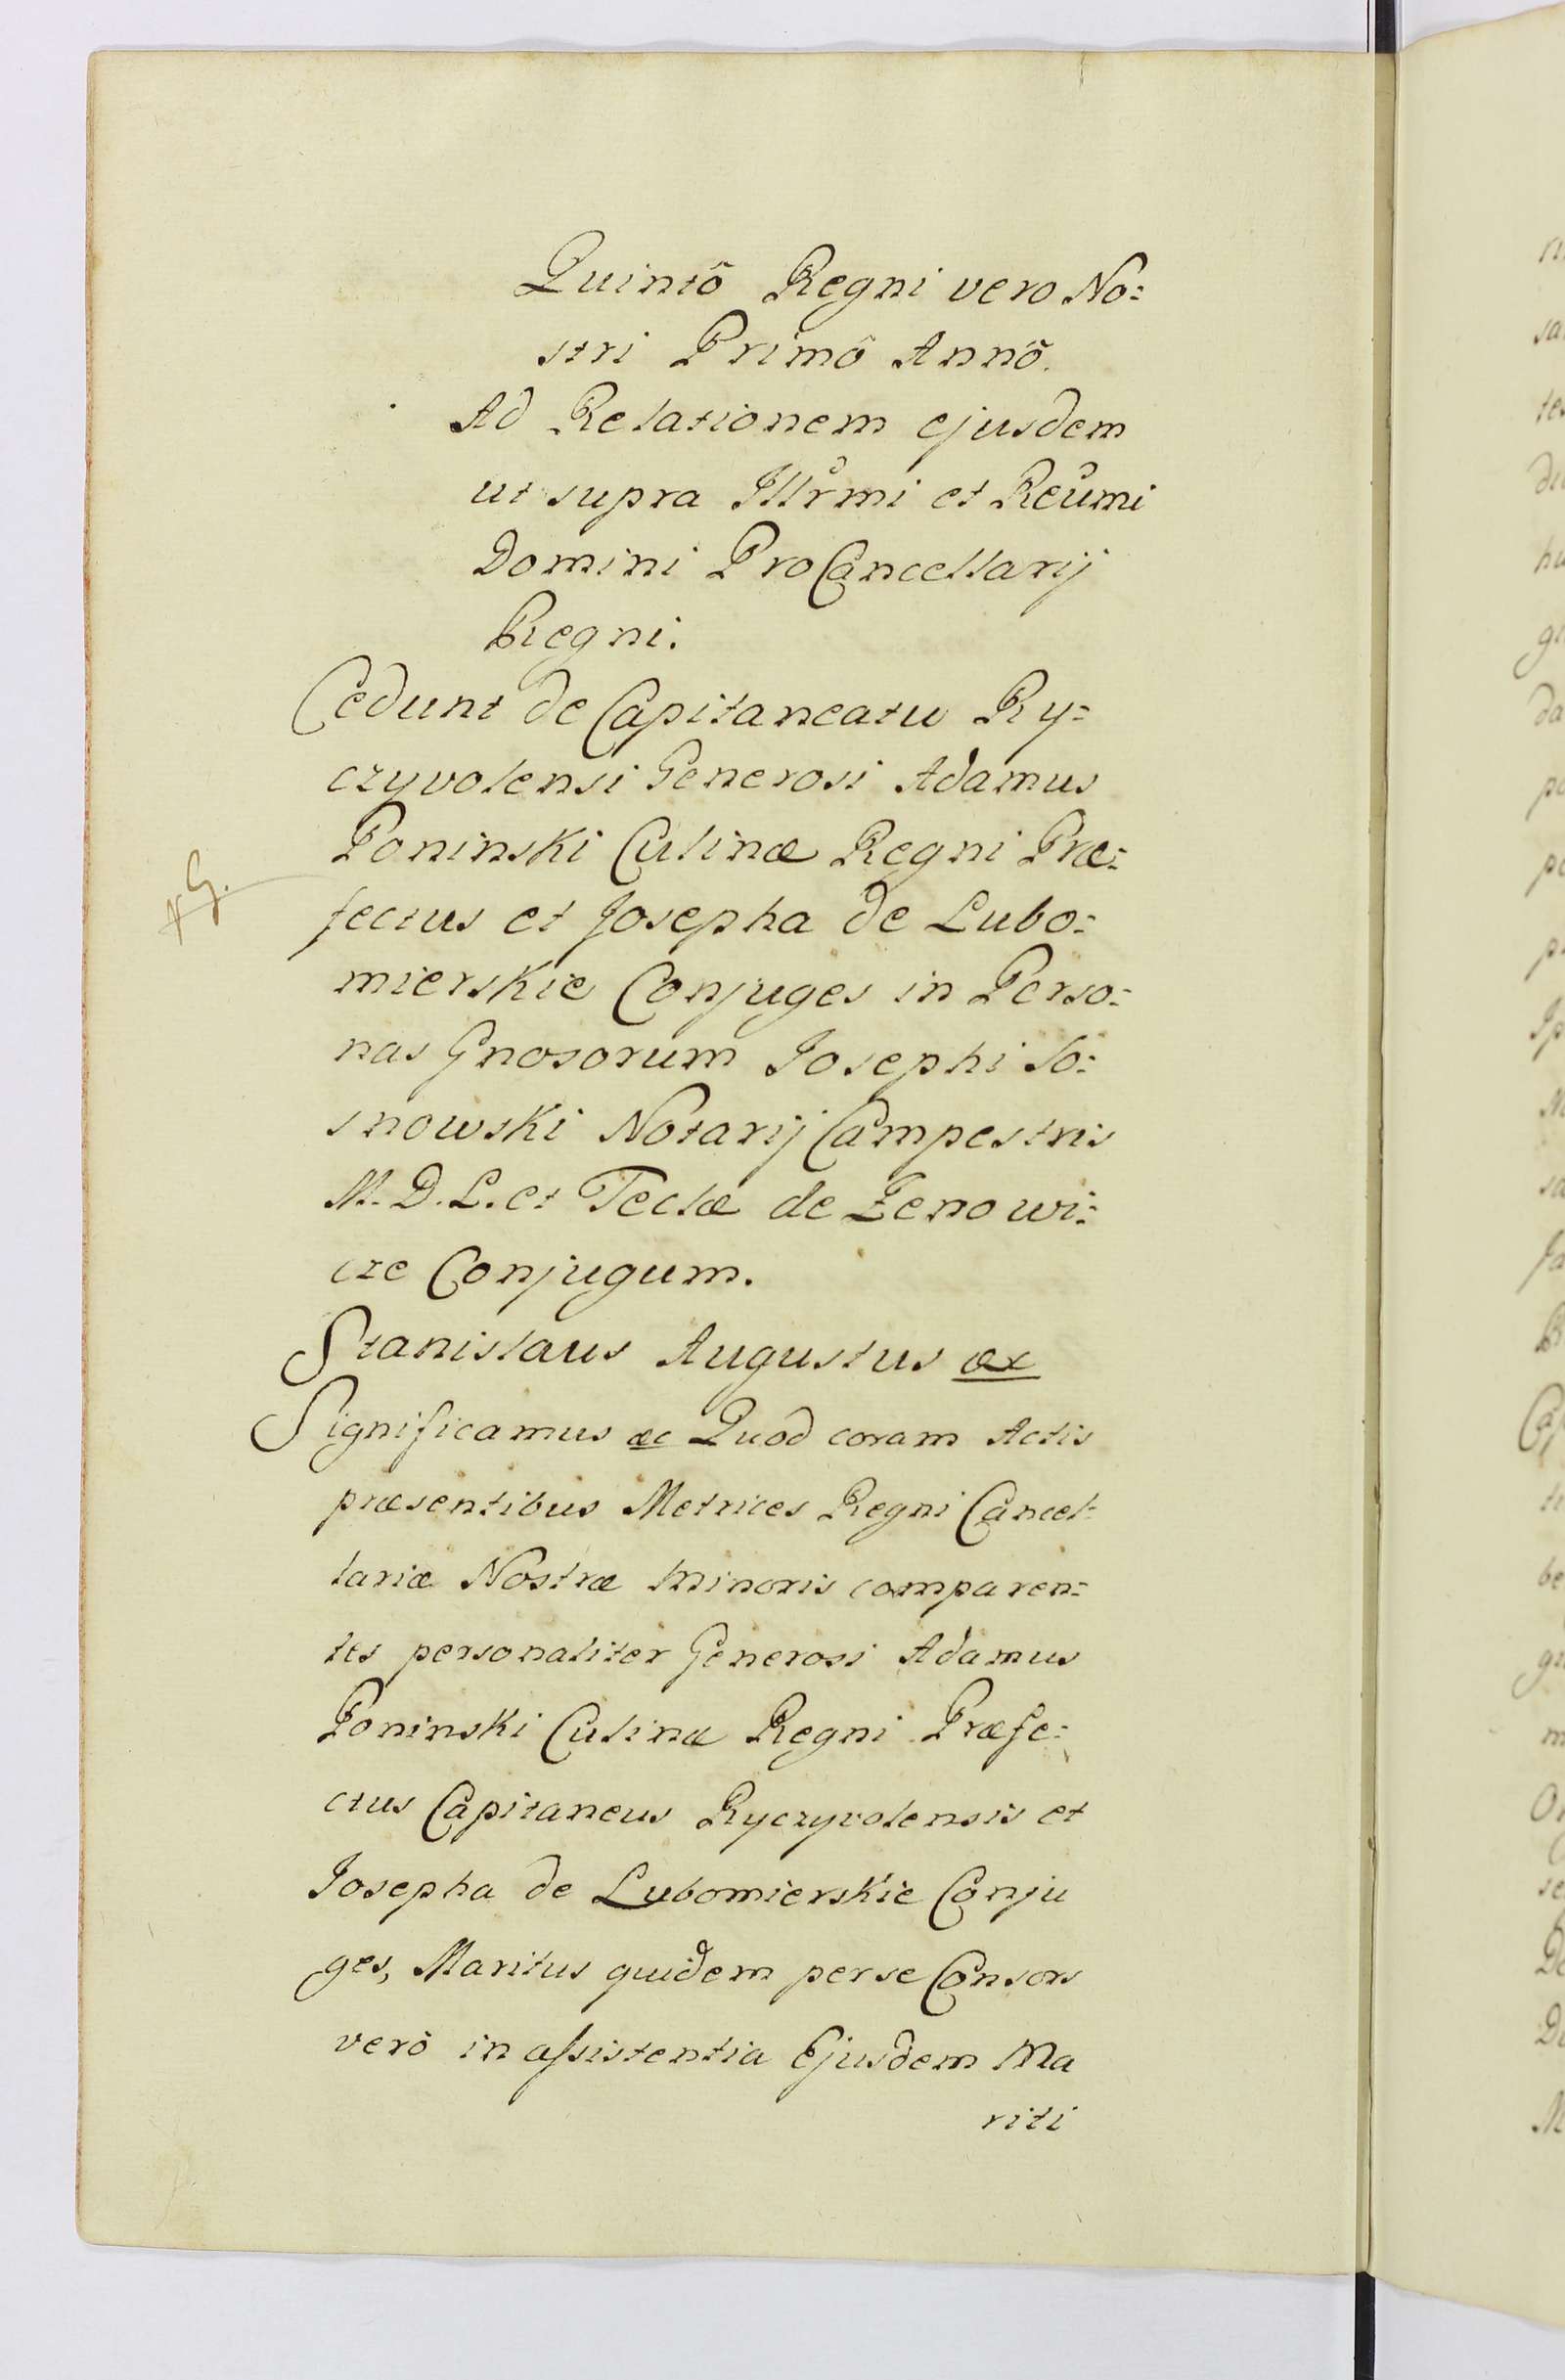 Quintô Regni vero No:
stri Primô Annô.
Ad Relationem ejusdem
ut supra Illrmi et Reūmi
Domini ProCancellarij
Regni.
Cedunt de Capitaneatu Ry:
czyvolensi Generosi Adamus
Poninski Culinæ Regni Præ:
fectus et Josepha de Lubo:
mierskie Conjuges in Perso:
nas Gnosorum Josephi So:
snowski Notarij Campestris
M. D. L. et Teclæ de Zenowi:
cze Conjugum.
Stanislaus Augustus &c
Significamus &c Quod coram Actis
præsentibus Metrices Regni Cancel:
lariæ Nostræ Minoris comparen:
tes personaliter Generosi Adamus
Poninski Culinæ Regni Præfe:
ctus Capitaneus Ryczyvolensis et
Josepha de Lubomierskie Conju
ges, Maritus quidem per se Consors
verò in assistentia Ejusdem Ma
riti